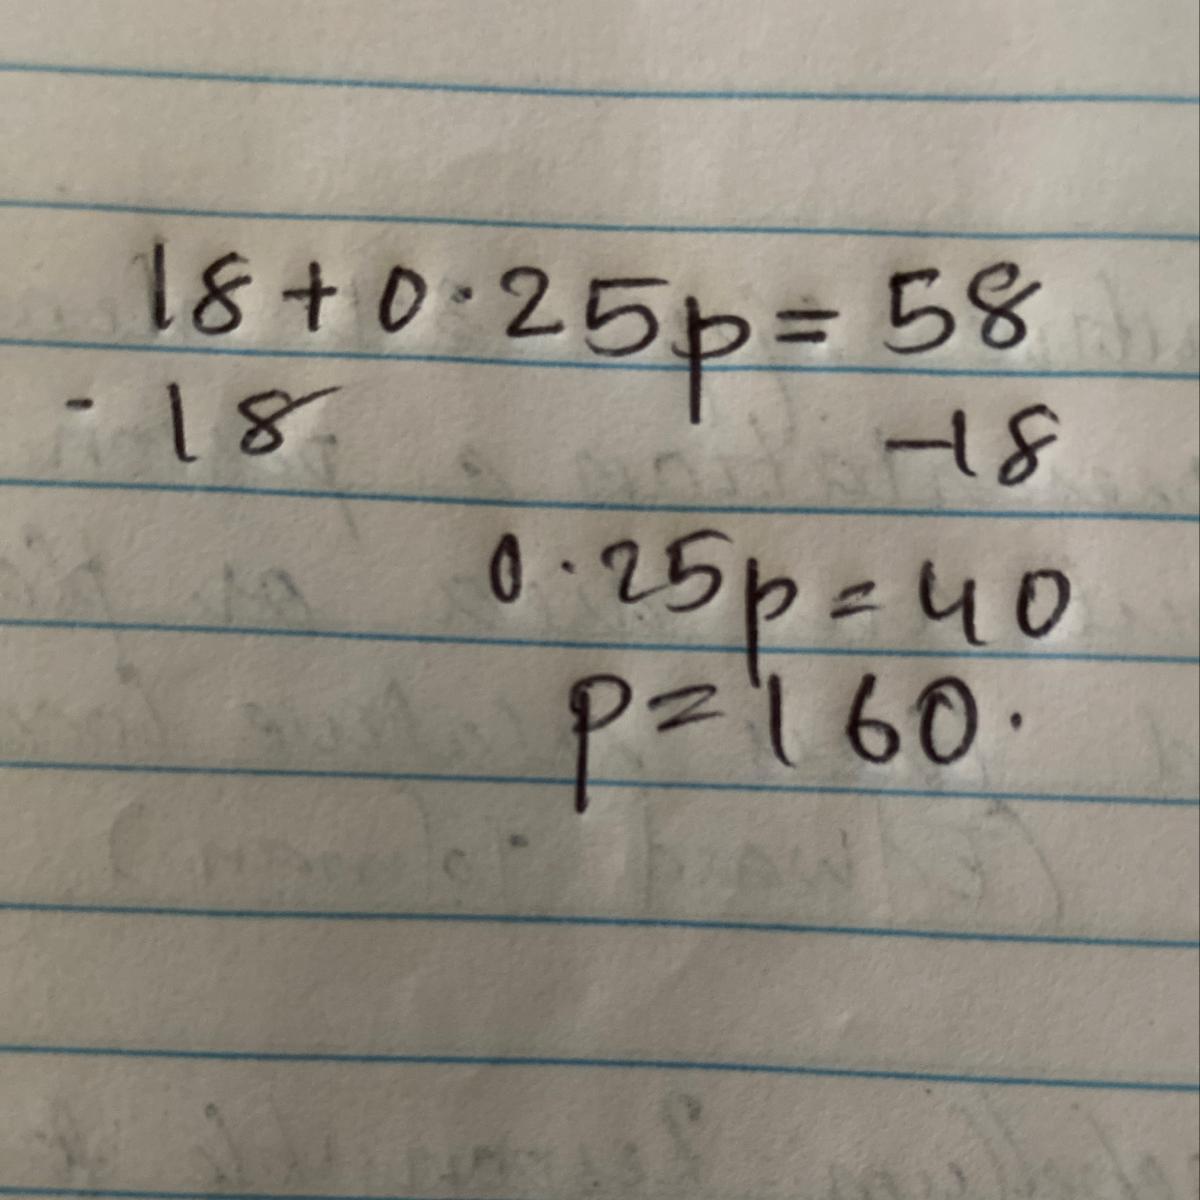 18+0.25p=58
-18 -18
0.25p=40
p=160.